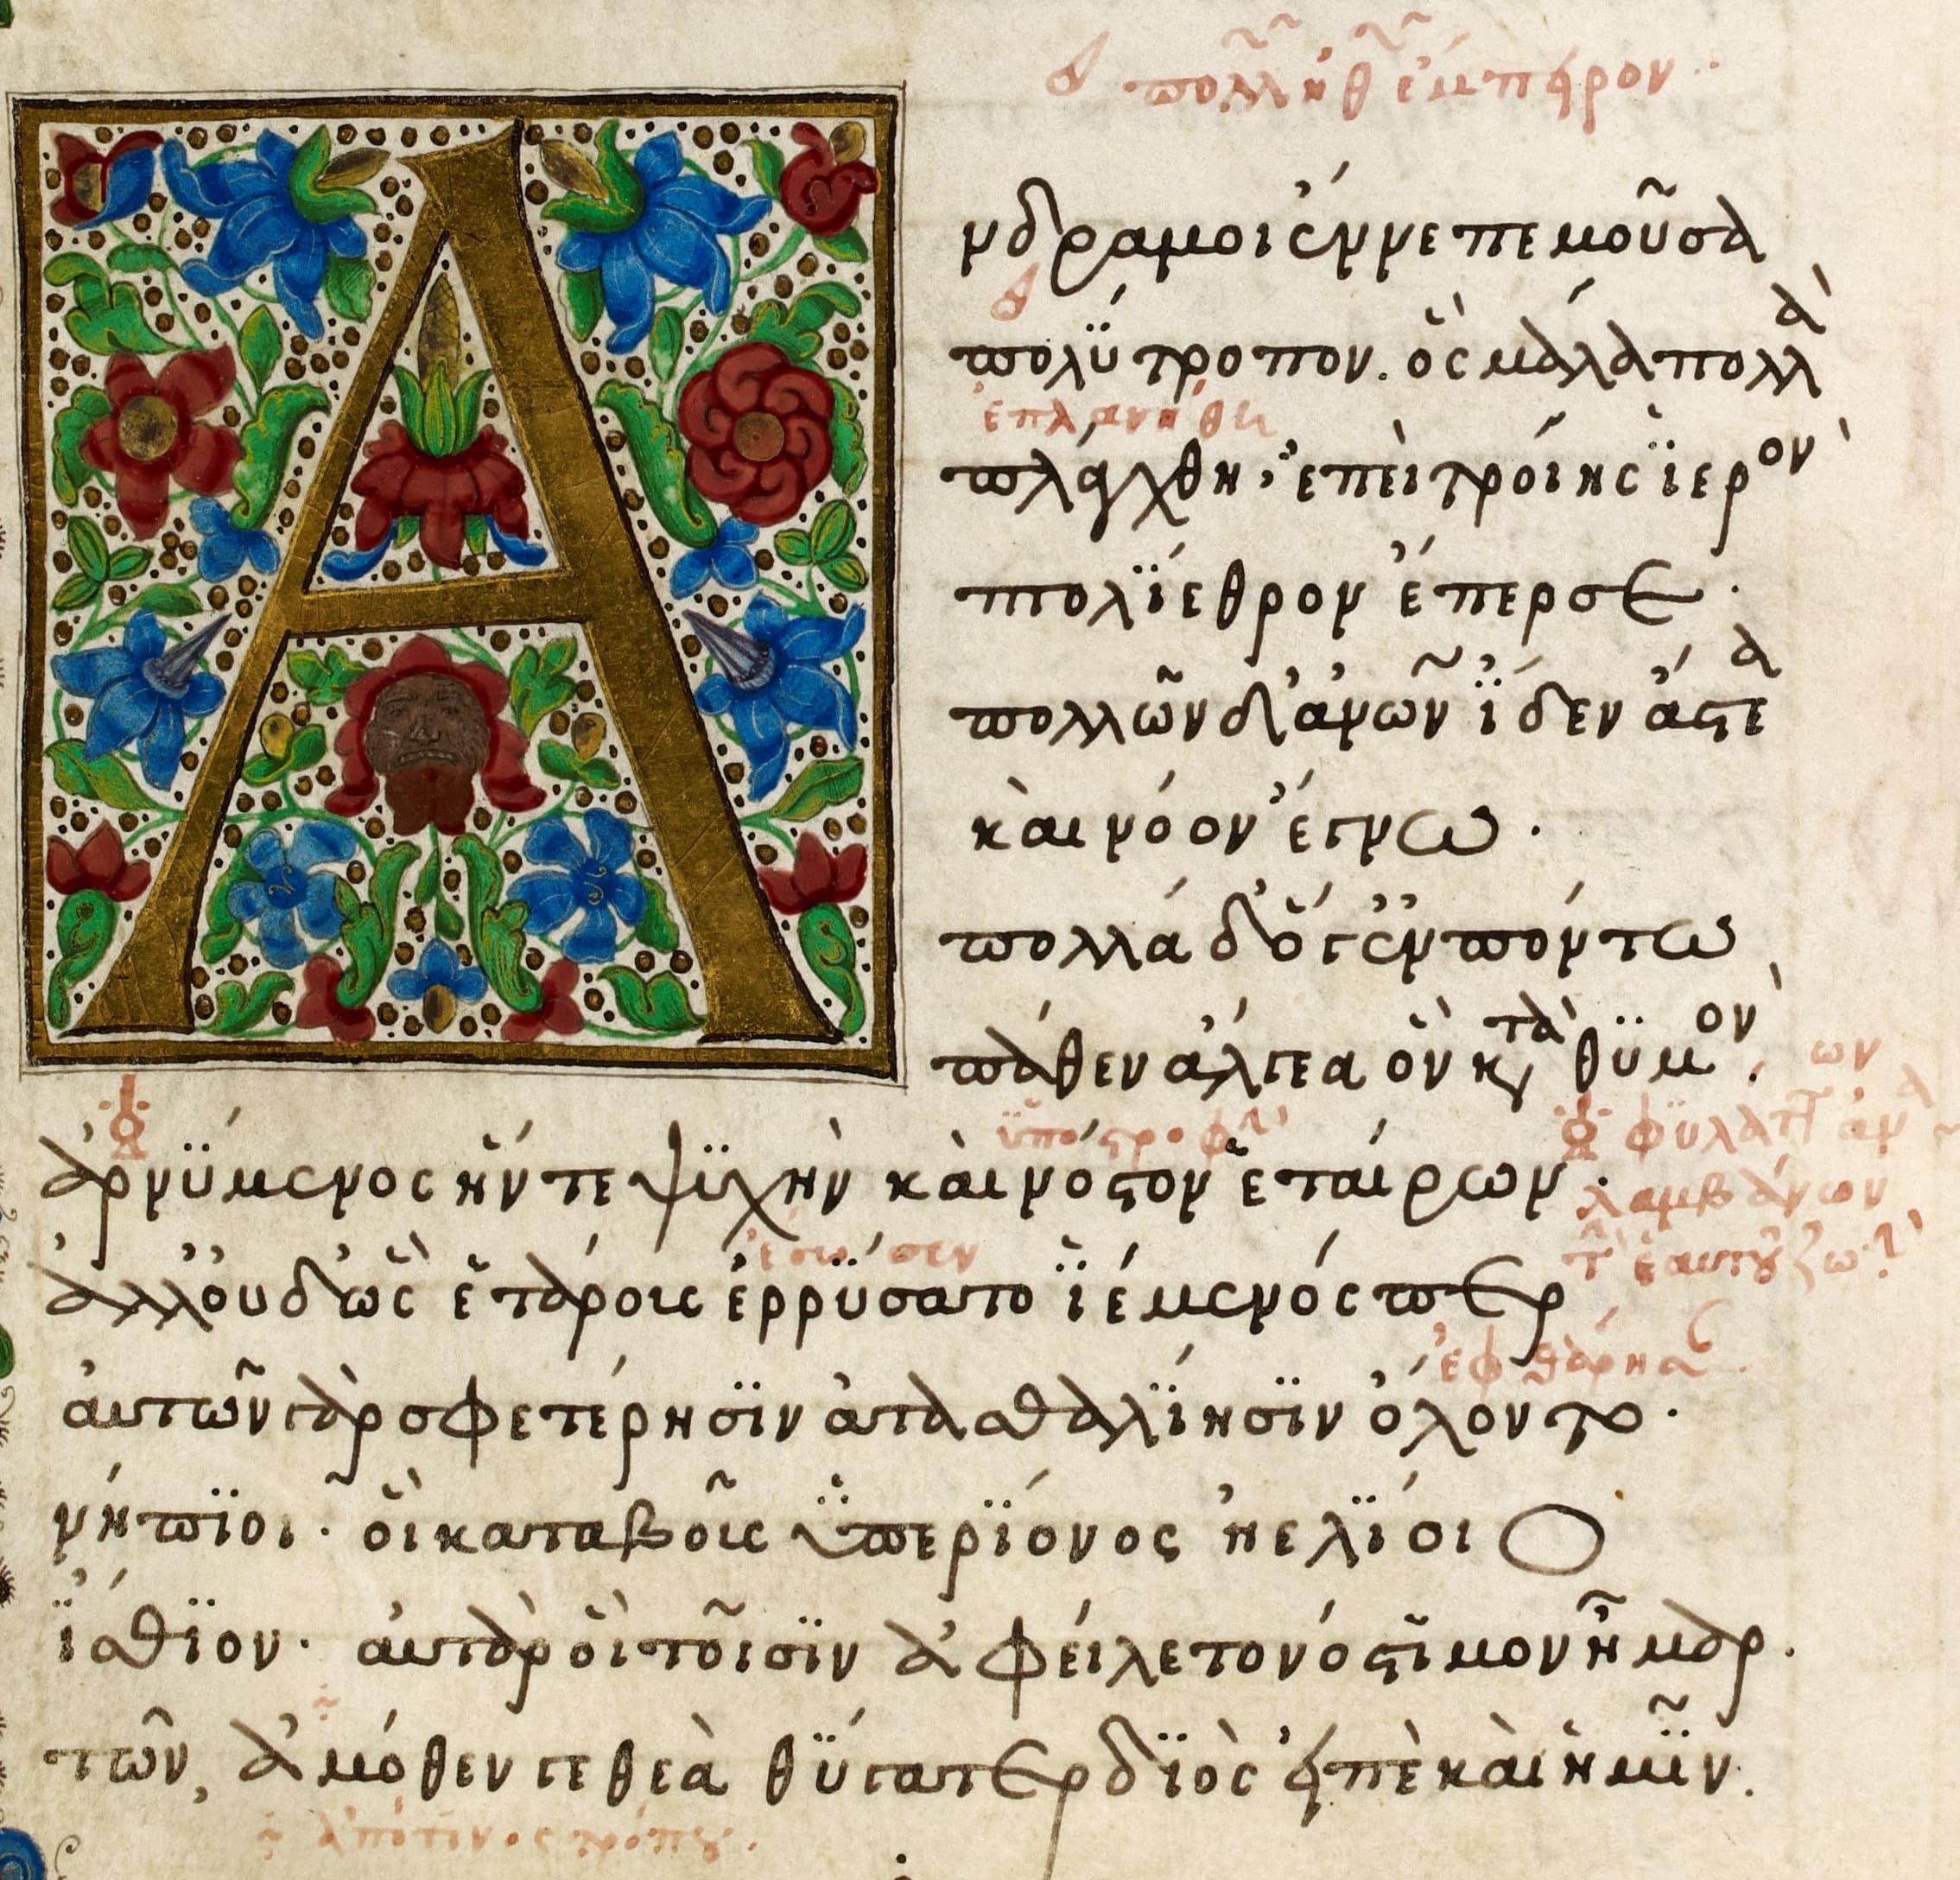 πολλῶν ἔμπειρον
Ἄνδρα μοι ἔννεπε μοῦσα
πολύτροπον. ὃς μάλα πολλὰ
ἐπλανήθη
πλάγχθη, ἐπεὶ τροίης ἱερὸν
πτολίεθρον ἔπερσε.
πολλῶν δ' ἀνθρώπων ἴδεν ἄστεα
καὶ νόον ἔγνω.
πολλὰ δ' ὅγ' ἐν πόντω
πάθεν ἄλγεα ὃν κατὰ θυμὸν.
ἀρνύμενος ἥν τε ψυχὴν καὶ νόστον ἑταίρων.
φυλάττων ἀντιλαμβάνων
τὴν ἑαυτοῦ ζωὴν
ἔσωσεν
ἀλλ' οὐδ' ὣς ἑτάροις ἐρρύσατο ἱέμενός περ
ἐφθάρησαν.
αὐτῶν γὰρ σφετέρησιν ἀτασθαλίησιν ὄλοντο.
νήπιοι. οἳ κατα βοῖς ὑπερίονος ἠελίοιο
ἤσθιον. αὐτὰρ ὃι τοῖσιν ἀφείλετο νόστιμον ἦμαρ.
τῶν, ἀμόθεν γε θεὰ θύγατερ διὸς εἰπὲ καὶ ἡμῖν.
ἀπό τινος τρόπου.